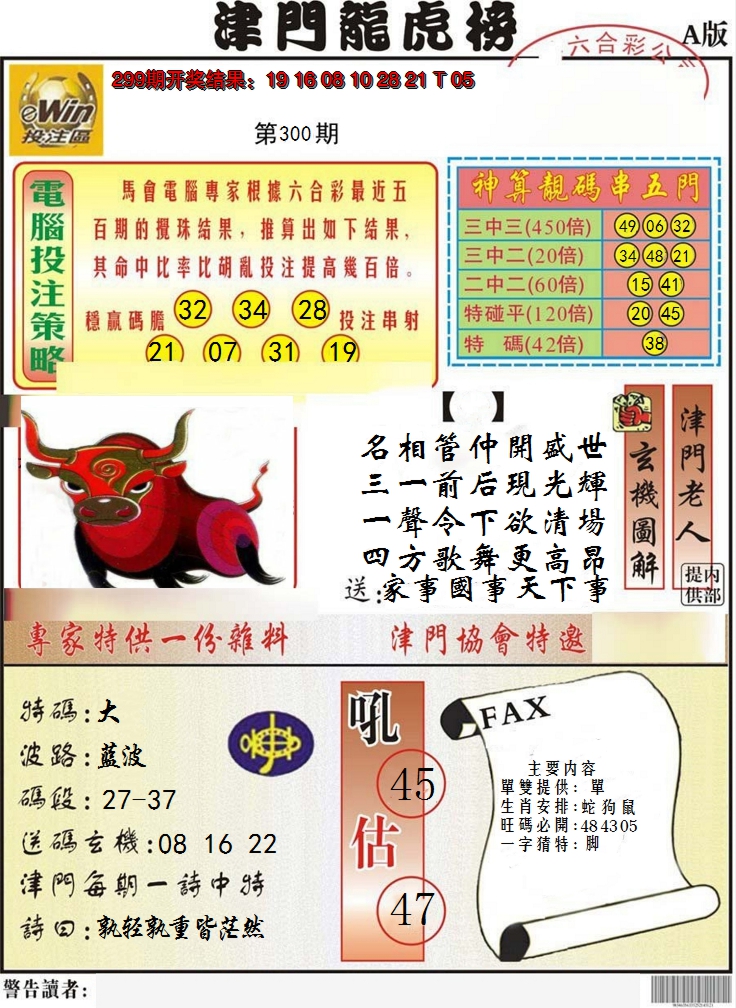 津門龍虎榜
A版
六合彩公
299期开奖结果：19 16 08 10 28 21 T 05
eWin
投注區
第300期
電腦投注策略
馬會電腦專家根據六合彩最近五
百期的攪珠结果，推算出如下结果，
其命中比率比胡亂投注提高幾百倍。
穩贏碼膽 32 34 28 投注串射
21 07 31 19
神算靚碼串五門
三中三(450倍) 49 06 32
三中二(20倍) 34 48 21
二中二(60倍) 15 41
特碰平(120倍) 20 45
特 碼(42倍) 38
【 】
名相管仲開盛世
三一前后現光輝
一聲令下欲清場
四方歌舞更高昂
送:家事國事天下事
玄機圖解
津門老人
内部提供
專家特供一份雜料
津門協會特邀
特碼:大
波路:藍波
碼段: 27-37
送碼玄機:08 16 22
津門每期一詩中特
詩曰:孰轻孰重皆茫然
吼
45
估
47
FAX
主要内容
單雙提供: 單
生肖安排:蛇狗鼠
旺碼必開:484305
一字猜特: 脚
警告讀者: